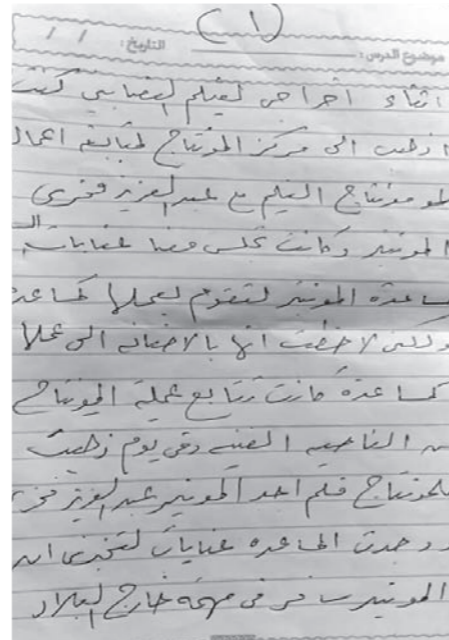 (١)
موضوع الدرس : التاريخ : / /
اثناء اخراجى لفيلم
اذهب الى مركز المونتاج لمتابعة اعمال
مونتاج الفيلم مع عبد العزيز فخرى
المونتير وكانت تجلس معنا عنايات الـ
ساعدة المونتير لتقوم بعملها كمساعدة
ولكنى لاحظت انها بالاضافه الى عملها
كمساعدة كانت تتابع عملية المونتاج
من الناحيه الفنيه وفى يوم ذهبت
للمونتاج فلم اجد المونتير عبد العزيز فخرى
ووجدت المساعده عنايات لتخبرنى ان
المونتير سافر فى مهمة خارج البلاد